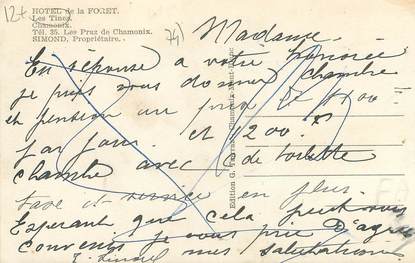 12+
HOTEL de la FORET.
Les Tines
Chamonix.
Tél. 35. Les Praz de Chamonix.
SIMOND, Propriétaire.
74)
Madame.
En réponse a votre honorée
je puis vous donner chambre
et pension au prix de
par jour. et 200.
chambre avec de toilette
taxe et service en plus.
Esperant que cela peut vous
convenir je vous prie D'agréer
mes salutations
Simond
Edition G. Tairraz, Chamonix-Mont-Blanc